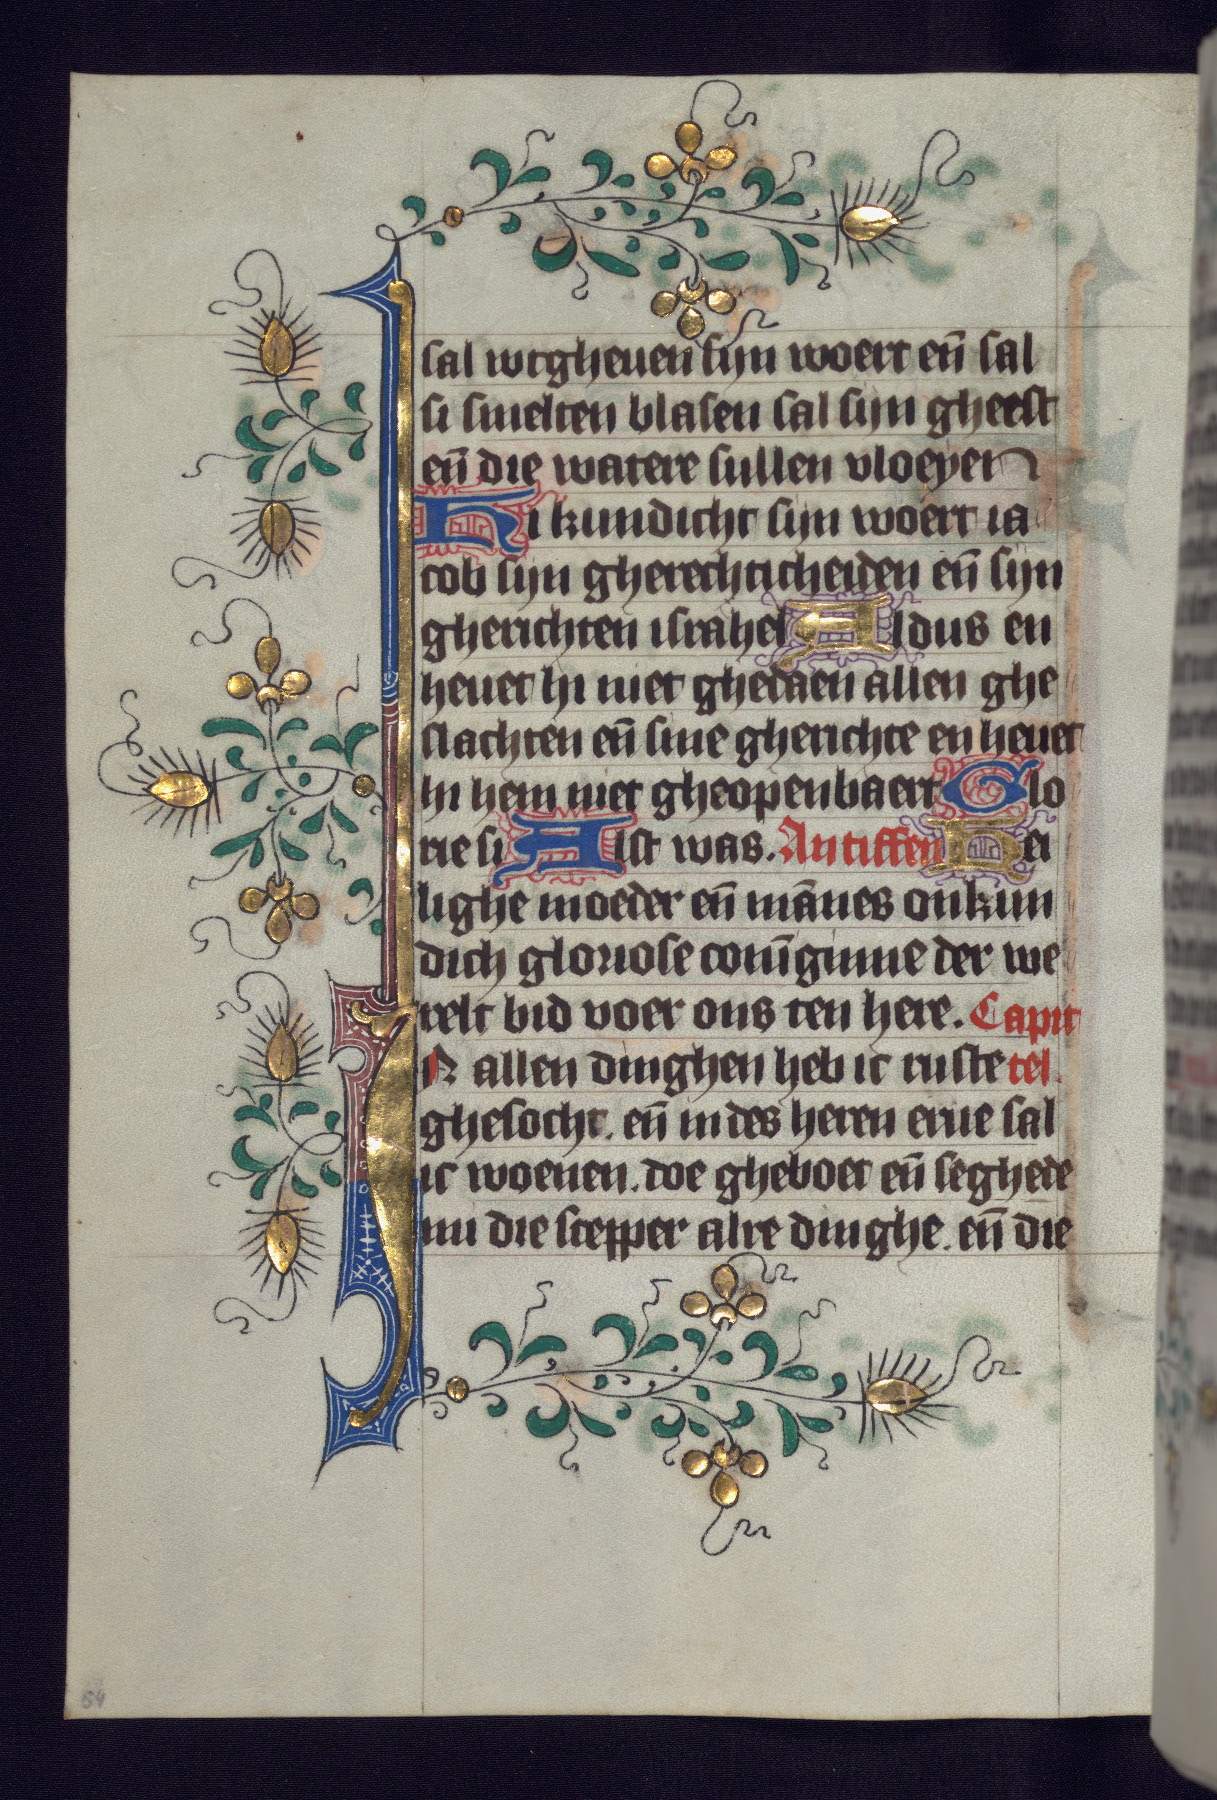 sal wtgheuen sijn woert en̄ sal
si smelten blasen sal sijn gheest
en̄ die watere sullen vloeyen
Hi kundicht sijn woert ia
cob sijn gherechticheiden en̄ sijn
gherichten israhel Aldus en
heuet hi niet ghedaen allen ghe
slachten en̄ sine gherichte en heuet
hi hem niet gheopenbaert Glo
rie si Alst was. Antiffen Hei
lighe moeder en̄ mānes onkun
dich gloriose coni̅ginne der we
relt bid voer ons ten here. Capit
IN allen dinghen heb ic ruste tel.
ghesocht. en̄ in des heren erue sal
ic woenen. doe gheboet en̄ seghede
mi die scepper alre dinghe. en̄ die
64